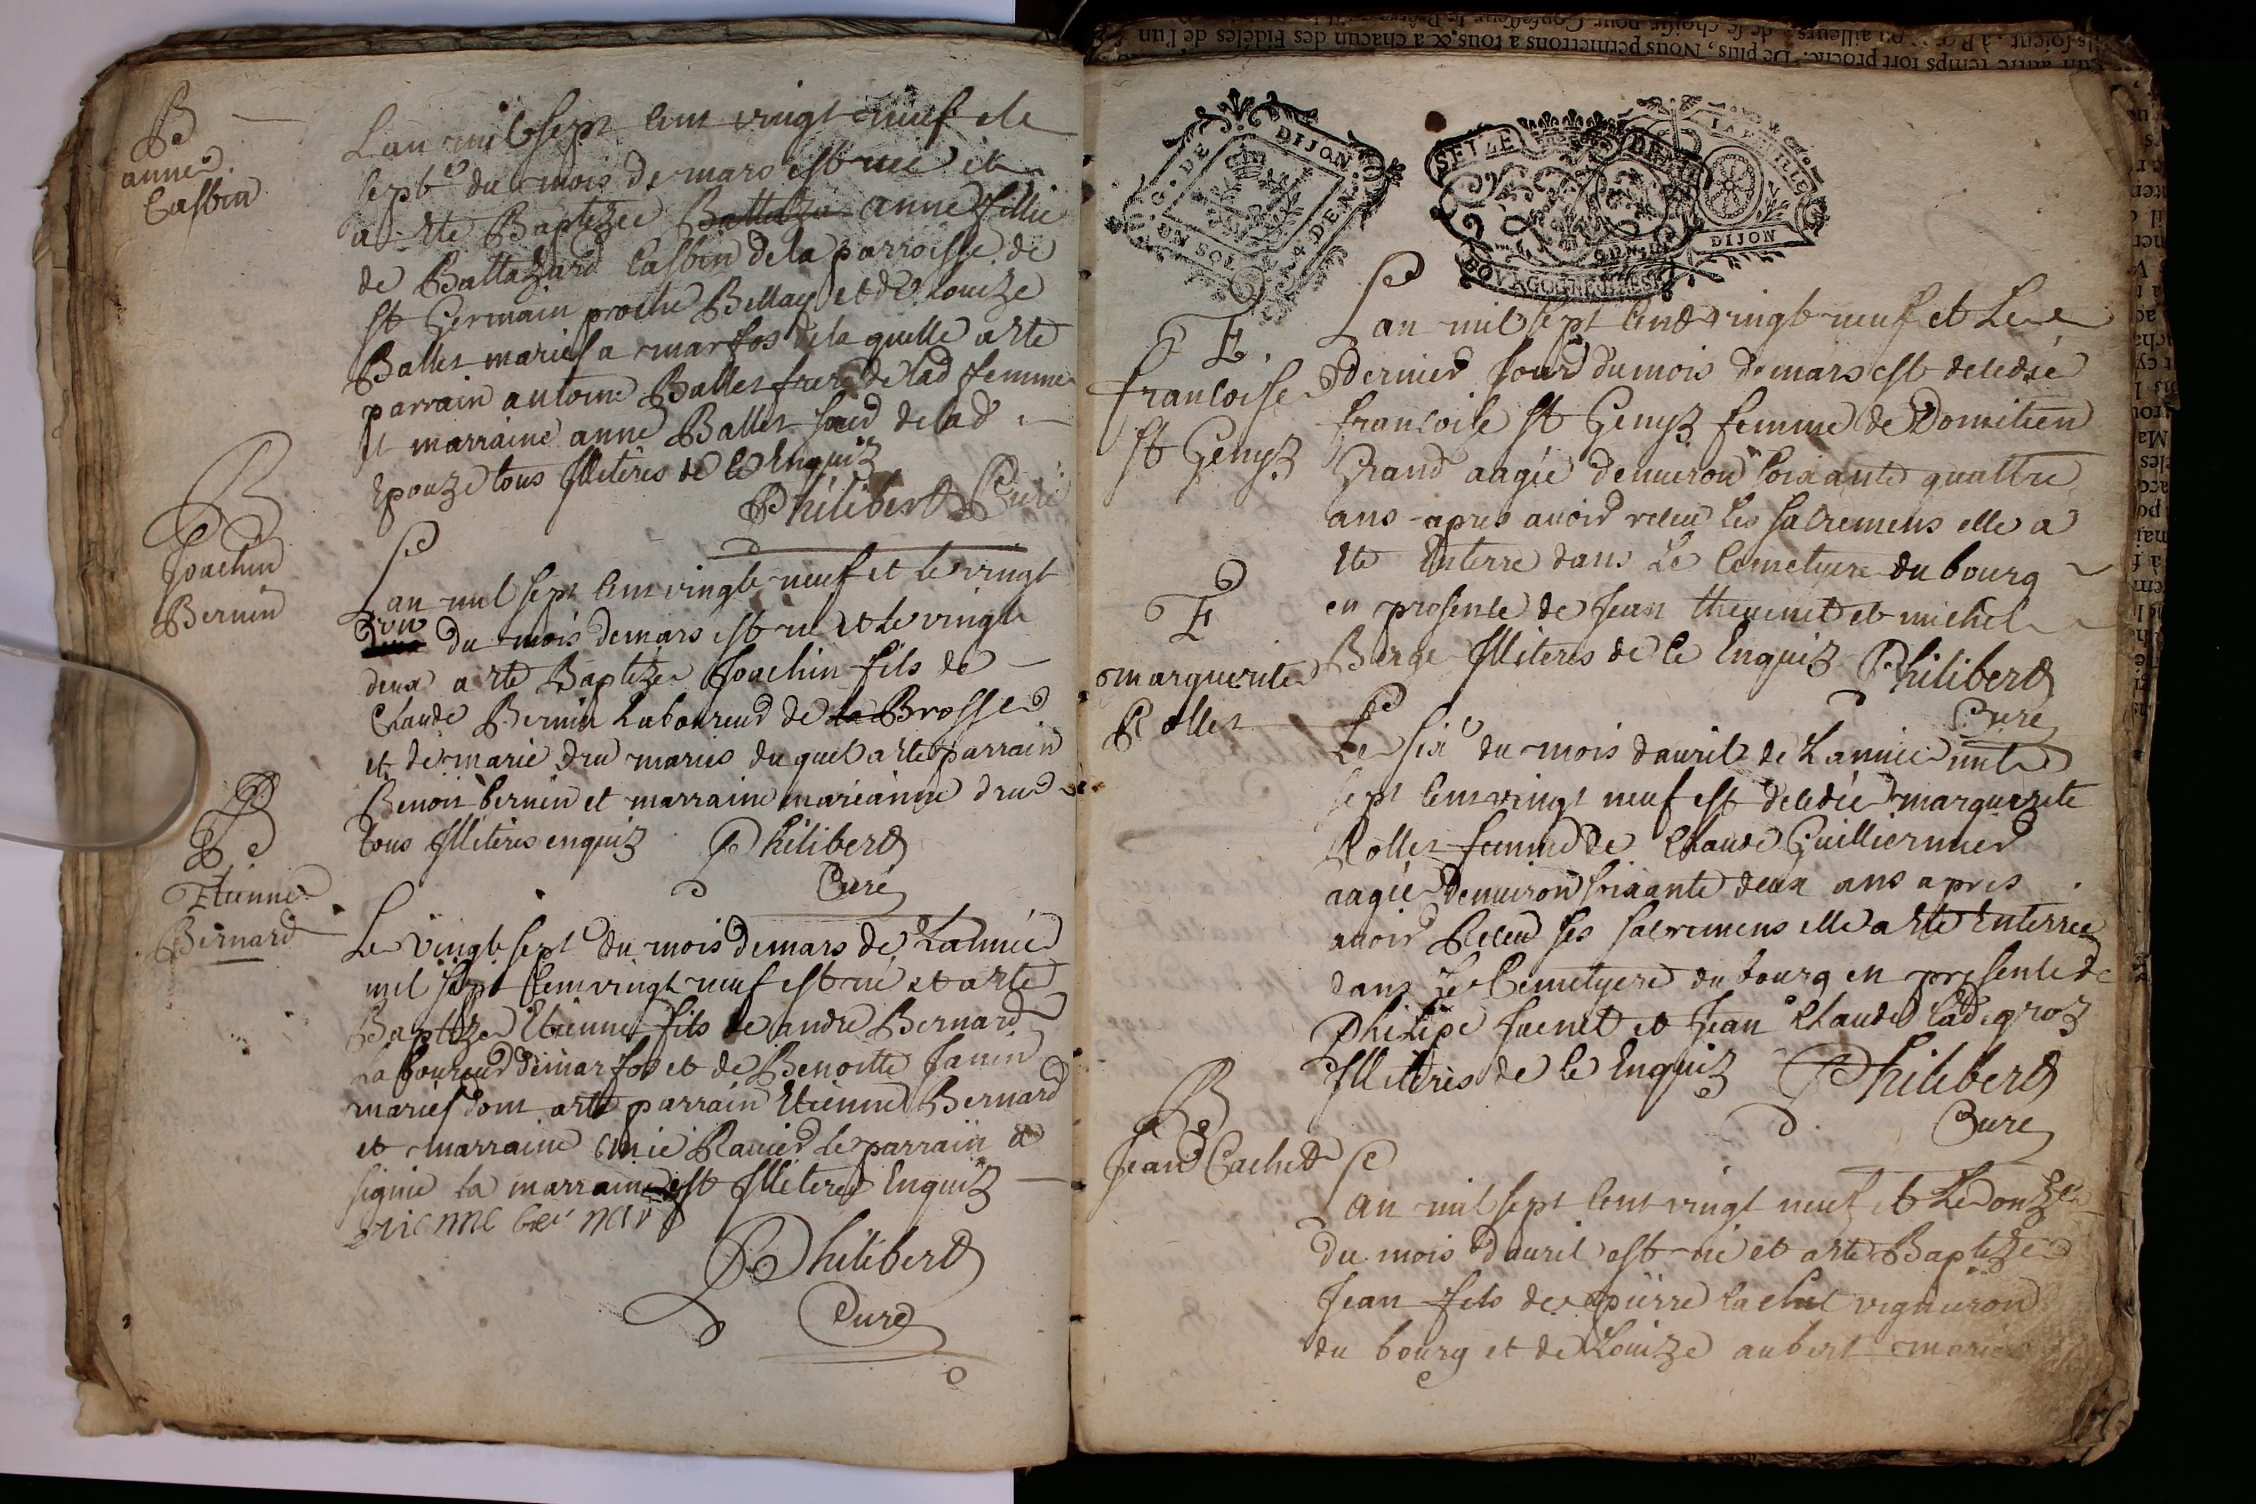 B
anne
Casbin
Lan mil sept cent vingt neuf et le
septe du mois de mars est née et
a ete Baptizée anne fillie
de Baltazard Casbin de la parroisse de
st Germain proche Bellay et de Louize
Ballet mariés a marfos de la quelle a ete
parrain antoine Ballet frere de lad femme
et marraine anne Ballet soeur de lad
epouze tous Illiterés de ce Enquis
Philiberd Curé
B
Joachin
Bernin
Lan mil sept cent vingt neuf et le vingt
un du mois de mars est né et le vingt
deux a ete Baptize Joachin fils de
Claude Bernin Laboureur de la Brosse
et de marie dru mariés du quel a ete parrain
Benoit bernin et marraine marianne dru
tous Illiterés enquis Philiberd
Curé
B
Etienne
Bernard
Le vingt septe du mois de mars de Lannée
mil sept cent vingt neuf est né et a ete
Baptize Etienne fils de andre Bernard
Laboureur de marfos et de Benoitte Janin
mariés dont a ete parrain Etienne Bernard
et marraine Ravier le parrain a
signé la marraine est Illiteree Enquis
Philiberd
Curé
G. DE DIJON
UN SOL 4 DEN.
SEIZE DEN
BOURGOGNE BRESSE
LA FEUILLE
DIJON
E
francoise
st Genyz
Lan mil sept cent vingt neuf et Le
dernier Jour du mois de mars est decedée
francoise st Genyz femme de Domitien
Grand aagée denuiron soixante quattre
ans apres auoir receu les sacremens elle a
ete Enterre dans Le Cemetyere du bourg
en presence de Jean theuenet et michel
Berge Illiteres de ce Enquis Philiberd
Curé
E
marguerite
Rollet
Le sixe du mois dauril de Lannée mil
sept cent vingt neuf est decedée marguerite
Rollet femme de Claude Guilliermier
aagée denuiron soixante deux ans apres
auoir Receu ses sacremens elle a ete Enterrée
dans Le Cemetyere du bourg en presence de
Philipe Juenet et Jean Claude
Illiterés de ce Enquis Philiberd
Curé
B
Jean Cachet
Lan mil sept cent vingt neuf et Le onze
du mois dauril est né et a ete Baptize
Jean fils de pierre Cachet vigneron
du bourg et de Louize aubert mariés